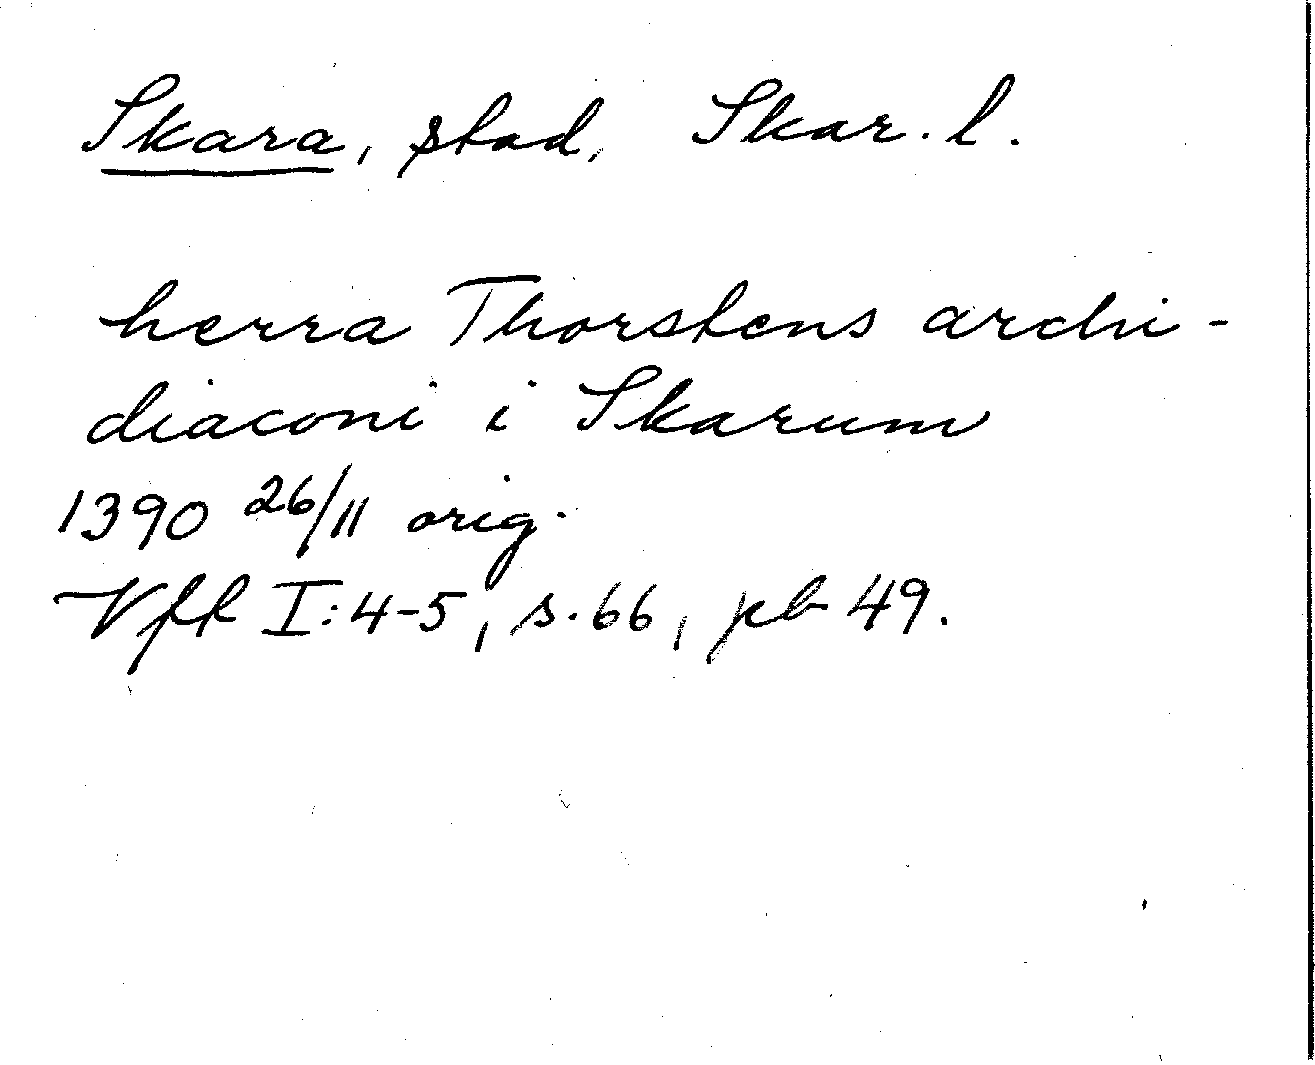 Skara, stad, Skar. l.
herra Thorstens archi-
diaconi i Skarum
1390 26/11 orig.
Vfft I:4-5, s. 66, pb 49.